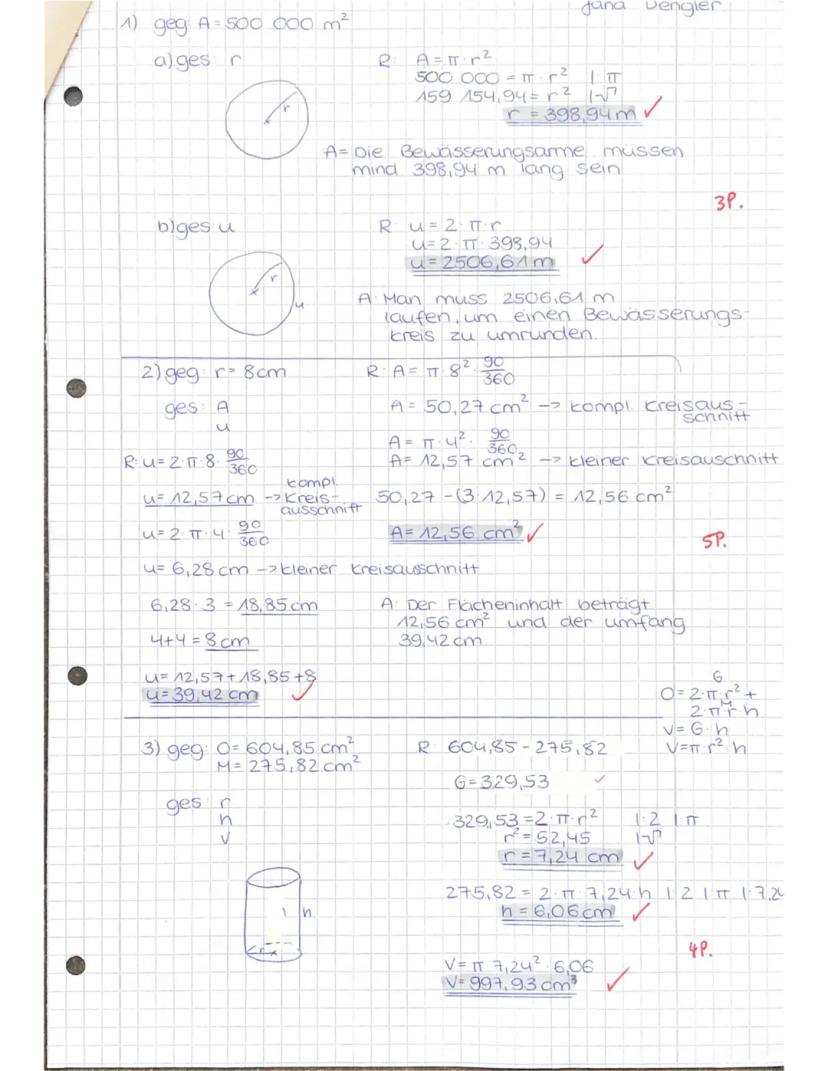 Jana Dengler
1) geg: A = 500 000 m²
a) ges: r
R: A = π · r²
500 000 = π · r² | : π
159 154,94 = r² | √
r = 398,94 m ✓
r
A = Die Bewässerungsarme müssen
mind. 398,94 m lang sein
3P.
b) ges: u
R: u = 2 · π · r
u = 2 · π · 398,94
u = 2506,61 m ✓
r
u
A: Man muss 2506,61 m
laufen, um einen Bewässerungs-
kreis zu umrunden.
2) geg: r = 8 cm
ges: A
u
R: A = π · 8² · 90/360
A = 50,27 cm² -> kompl. Kreisaus-
schnitt
A = π · 4² · 90/360
A = 12,57 cm² -> kleiner Kreisauschnitt
50,27 - (3 · 12,57) = 12,56 cm²
A = 12,56 cm² ✓
5P.
R: u = 2 · π · 8 · 90/360
u = 12,57 cm -> kompl. Kreis-
ausschnitt
u = 2 · π · 4 · 90/360
u = 6,28 cm -> kleiner Kreisausschnitt
6,28 · 3 = 18,85 cm
4+4 = 8 cm
u = 12,57 + 18,85 + 8
u = 39,42 cm ✓
A: Der Flächeninhalt beträgt
12,56 cm² und der umfang
39,42 cm.
G
O = 2·π·r² +
M
2·π·r·h
V = G·h
V = π·r²·h
3) geg: O = 604,85 cm²
M = 275,82 cm²
ges: r
h
V
h
r
R: 604,85 - 275,82
G = 329,53 ✓
329,53 = 2 · π · r² | : 2 | : π
r² = 52,45 | √
r = 7,24 cm ✓
275,82 = 2 · π · 7,24 · h | : 2 | : π | : 7,24
h = 6,06 cm ✓
4P.
V = π · 7,24² · 6,06
V = 997,93 cm³ ✓